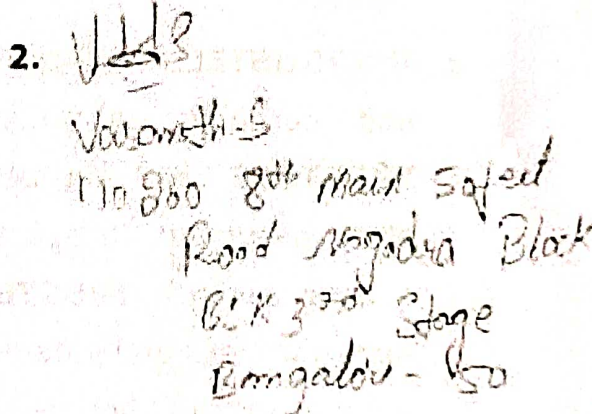 2.
Vasanth.S
No 960 8th Main
Road Nagendra Block
BSK 3rd Stage
Bangalor - 50